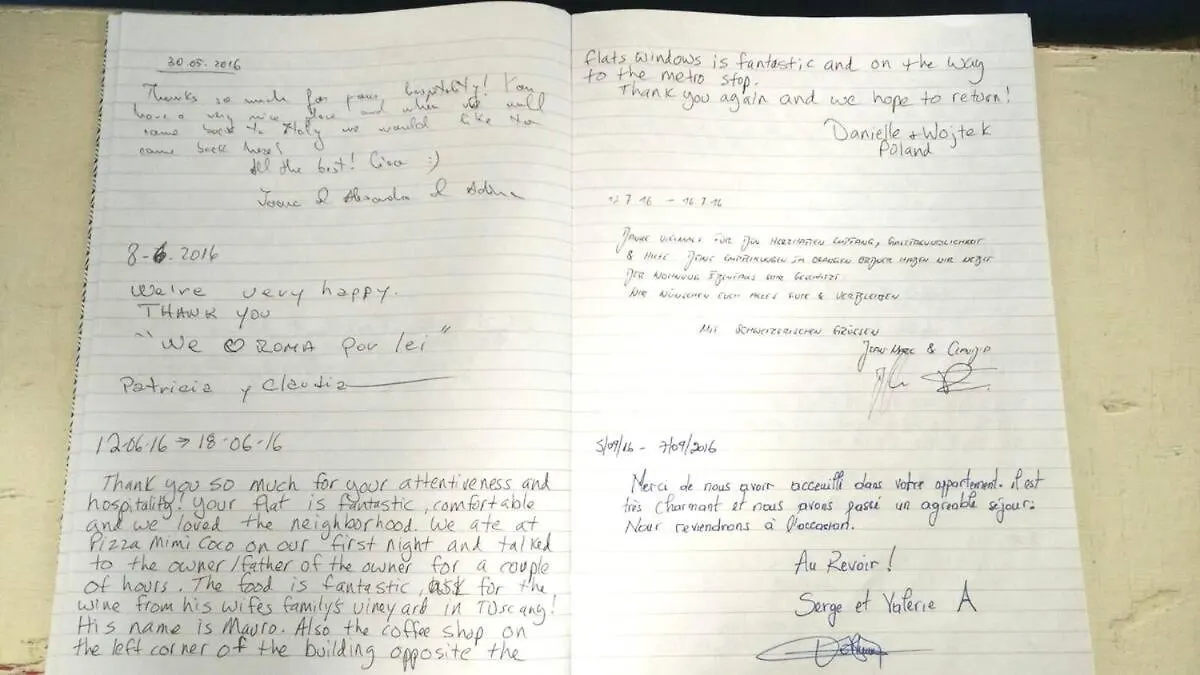 30.05.2016
Thanks so much for your hospitality! You
have a very nice place and when we will
come back to Italy we would like to
come back here!
All the best! Ciao :)
8-6.2016
We're very happy.
THANK YOU
"We ♡ ROMA por lei"
Patricia y Claudia
12-06-16 → 18-06-16
Thank you so much for your attentiveness and
hospitality! Your flat is fantastic, comfortable
and we loved the neighborhood. We ate at
Pizza Mimi Coco on our first night and talked
to the owner/father of the owner for a couple
of hours. The food is fantastic, ask for the
wine from his wifes family's vineyard in Tuscany!
His name is Mauro. Also the coffee shop on
the left corner of the building opposite the
flats windows is fantastic and on the way
to the metro stop.
Thank you again and we hope to return!
Danielle + Wojtek
Poland
12.7.16 - 16.7.16
DANKE VIELMALS FÜR DEN HERZHAFTEN EMPFANG, GASTFREUNDLICHKEIT
& HILFE. DEINE EMPFEHLUNGEN IM ORANGEN ORDNER HABEN WIR NEBST
DER WOHNUNG EBENFALLS SEHR GESCHÄTZT.
WIR WÜNSCHEN EUCH ALLES GUTE & VERBLEIBEN
MIT SCHWEIZERISCHEN GRÜSSEN
JEAN-MARC & CLAUDIA
5/09/16 - 7/09/2016
Merci de nous avoir acceuilli dans votre appartement. il est
très charmant et nous avons passé un agreable séjour.
Nous reviendrons à l'occasion.
Au Revoir!
Serge et Valerie A